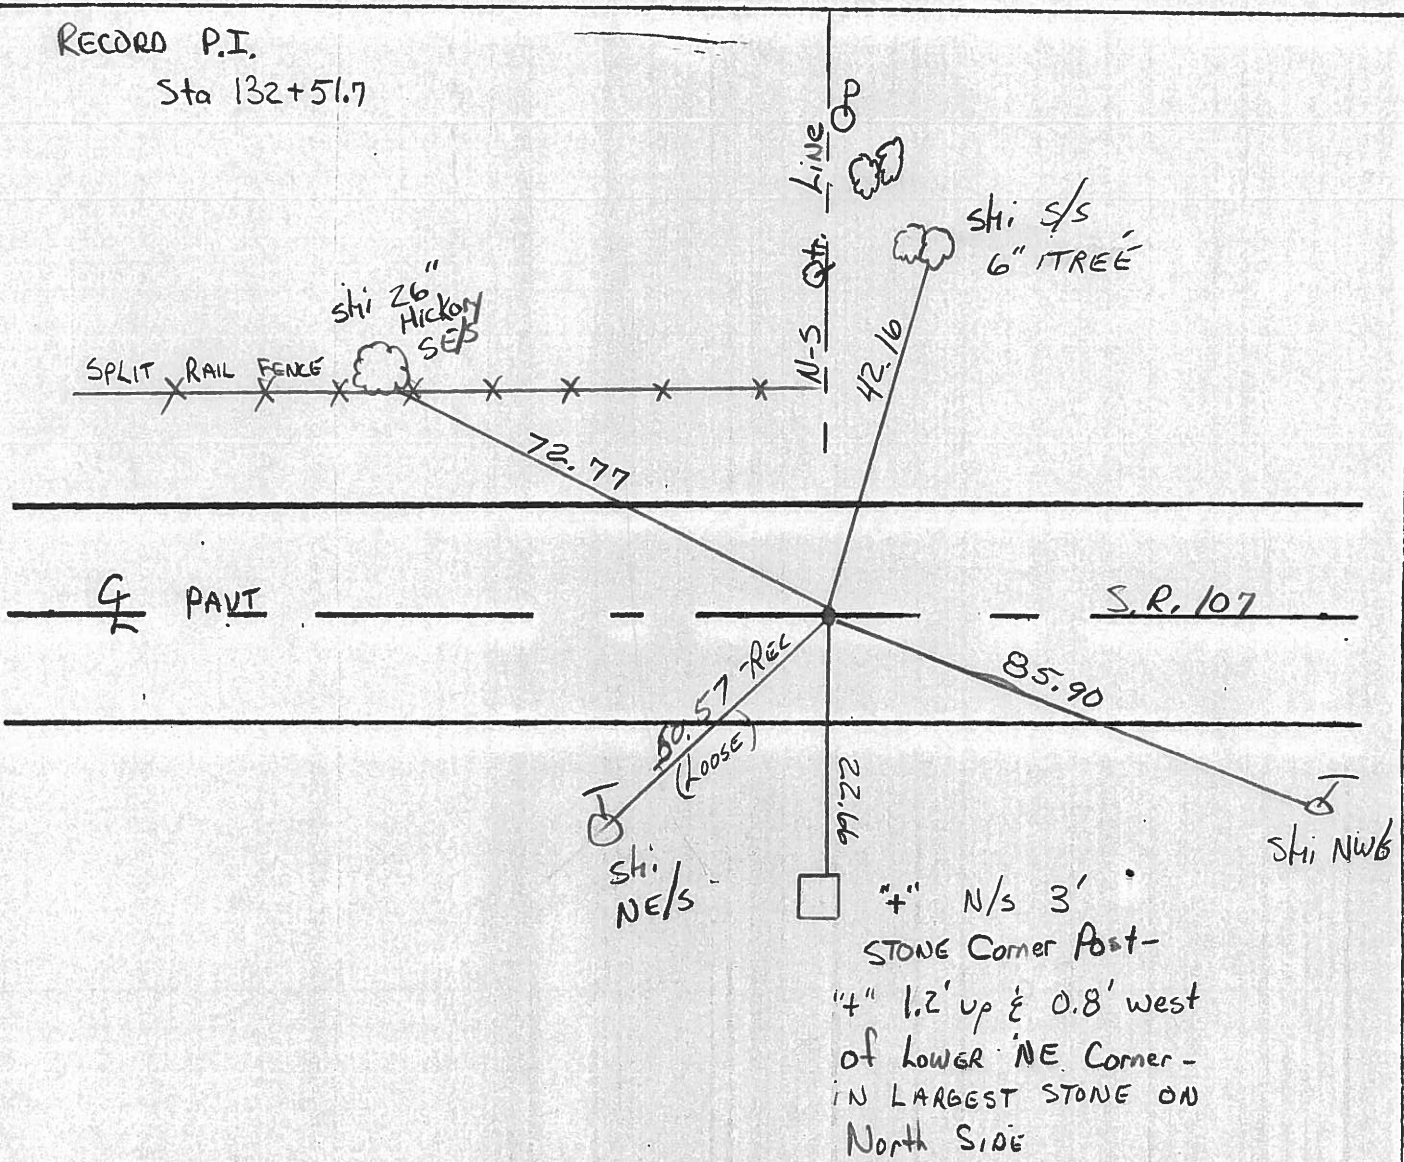 RECORD P.I.
Sta 132+51.7
P
N-S Qtr. Line
shi S/S
6" TREE
shi 26"
Hickory
SE/S
SPLIT RAIL FENCE
42.16
72.77
℄ PAVT
S.R. 107
50.57-REC
(LOOSE)
85.90
22.66
shi
NE/S
shi
"+" N/S 3'
STONE Corner Post-
"+" 1.2' up & 0.8' west
of LOWER NE Corner-
IN LARGEST STONE ON
North SIDE